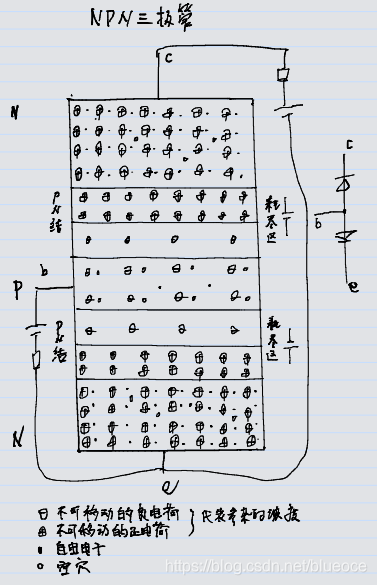 NPN三极管
c
N
PN结
耗尽区
c
b
b
P
e
PN结
耗尽区
N
e
不可移动的负电荷
不可移动的正电荷
代表掺杂的浓度
自由电子
空穴
https://blog.csdn.net/blueoce